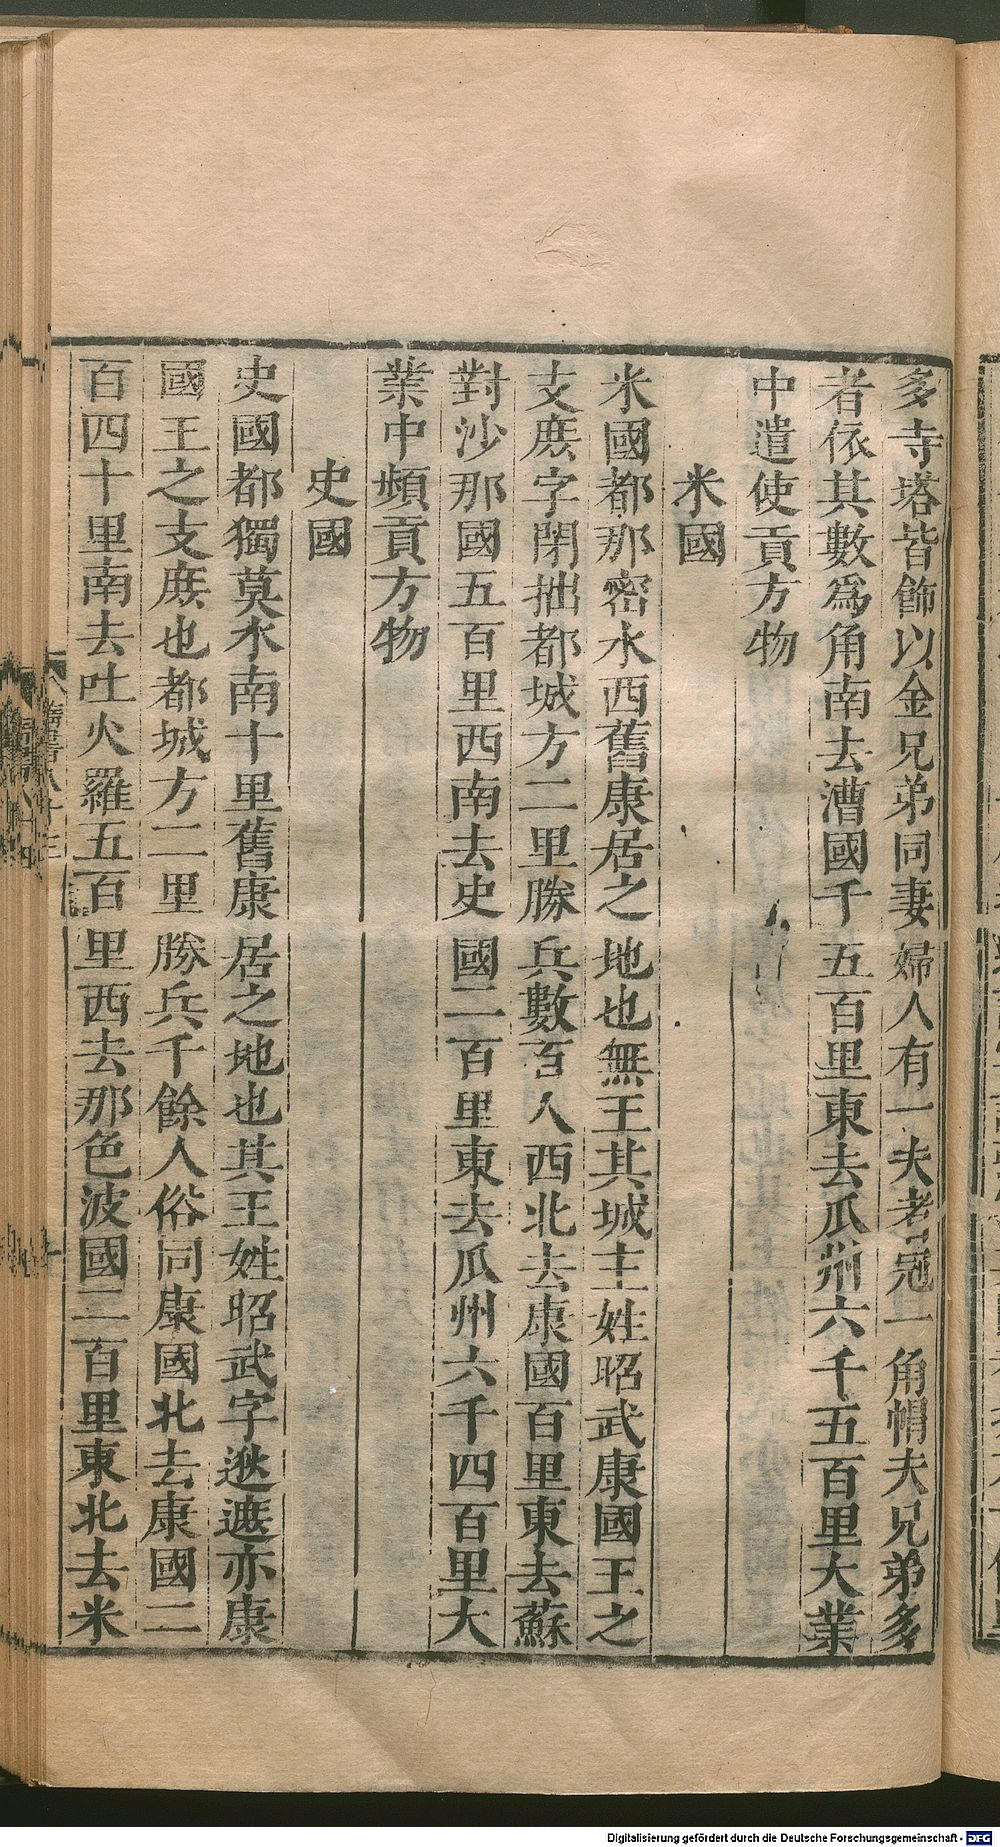 多寺塔皆飾以金兄弟同妻婦人有一夫者冠一角帽夫兄弟多
者依其數爲角南去漕國千五百里東去瓜州六千五百里大業
中遣使貢方物
米國
米國都那密水西舊康居之地也無王其城主姓昭武康國王之
支庶字閉拙都城方二里勝兵數百人西北去康國百里東去蘇
對沙那國五百里西南去史國二百里東去瓜州六千四百里大
業中頻貢方物
史國
史國都獨莫水南十里舊康居之地也其王姓昭武字逖遮亦康
國王之支庶也都城方二里勝兵千餘人俗同康國北去康國二
百四十里南去吐火羅五百里西去那色波國二百里東北去米
隋書八十三
Digitalisierung gefördert durch die Deutsche Forschungsgemeinschaft - DFG